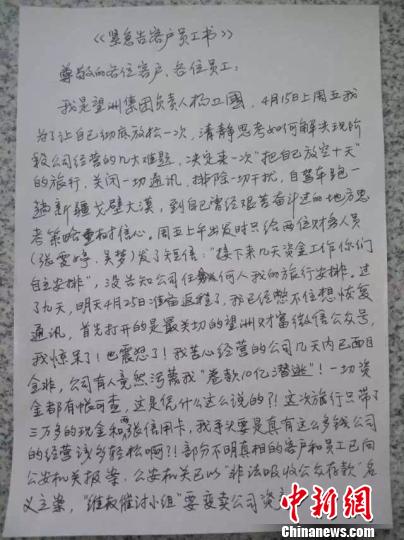 《紧急告客户员工书》
尊敬的各位客户、各位员工:
我是望洲集团负责人杨卫国，4月15日上周五我
为了让自己彻底放松一次，清静思考如何解决现阶
段公司经营的几大难题，决定来一次"把自己放空十天"
的旅行，关闭一切通讯，排除一切干扰，自驾车跑一
趟新疆戈壁大漠，到自己曾经艰苦奋斗过的地方思
考策略重树信心。周五上午出发时只给两位财务人员
(张雯婷、吴梦)发了短信:"接下来几天资金工作你们
自主安排"，没告知公司任何人我的旅行安排。过
了九天，明天4月25日准备返程了，我已经憋不住想恢复
通讯，首先打开的是最关切的望洲财富微信公众号，
我惊呆了!也震怒了!我苦心经营的公司几天内已面目
全非，公司有人竟然污蔑我"卷款10亿潜逃"!一切资
金都有帐可查，这是凭什么这么说的?!这次旅行只带了
三万多的现金和两张信用卡，我手头要是真有这么多钱公司
的经营该多轻松啊?!部分不明真相的客户和员工已向
公安机关报案，公安机关已以"非法吸收公众存款"名
义立案，"维权催讨小组"要变卖公司资产
中新网
Chinanews.com